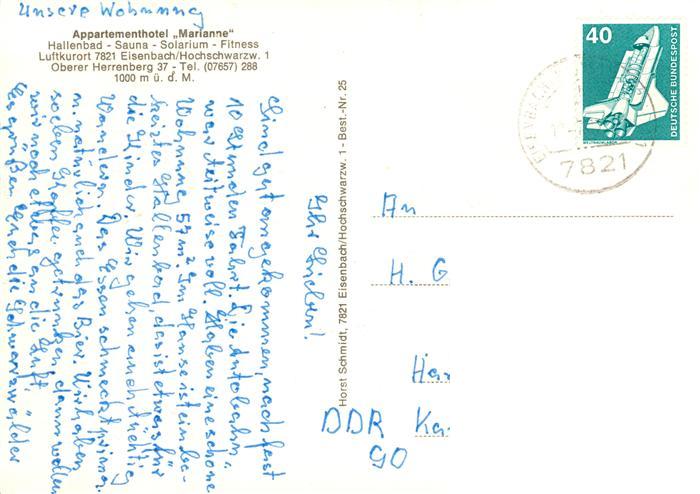 Unsere Wohnung
Appartementhotel „Marianne"
Hallenbad - Sauna - Solarium - Fitness
Luftkurort 7821 Eisenbach/Hochschwarzw. 1
Oberer Herrenberg 37 - Tel. (07657) 288
1000 m ü. d. M.
Ihr Lieben!
Sind gut angekommen, nach fast
10 Stunden Fahrt. Die Autobahn
war teilweise voll. Haben eine schöne
Wohnung 57 m². Im Hause ist ein be-
heiztes Hallenbad, das ist etwas für
die Kinder. Wir gehen auch tüchtig
Wandern. Das Essen schmeckt prima
u. natürlich auch das Bier. Wir haben
soeben Kaffee getrunken, dann wollen
wir noch etwas an die Luft.
Es grüßen Euch die Schwarzwälder
Horst Schmidt, 7821 Eisenbach/Hochschwarzw. 1 - Best.-Nr. 25
40
DEUTSCHE BUNDESPOST
WELTRAUMLABOR
7821
An
H. G
Har
DDR Ka.
90